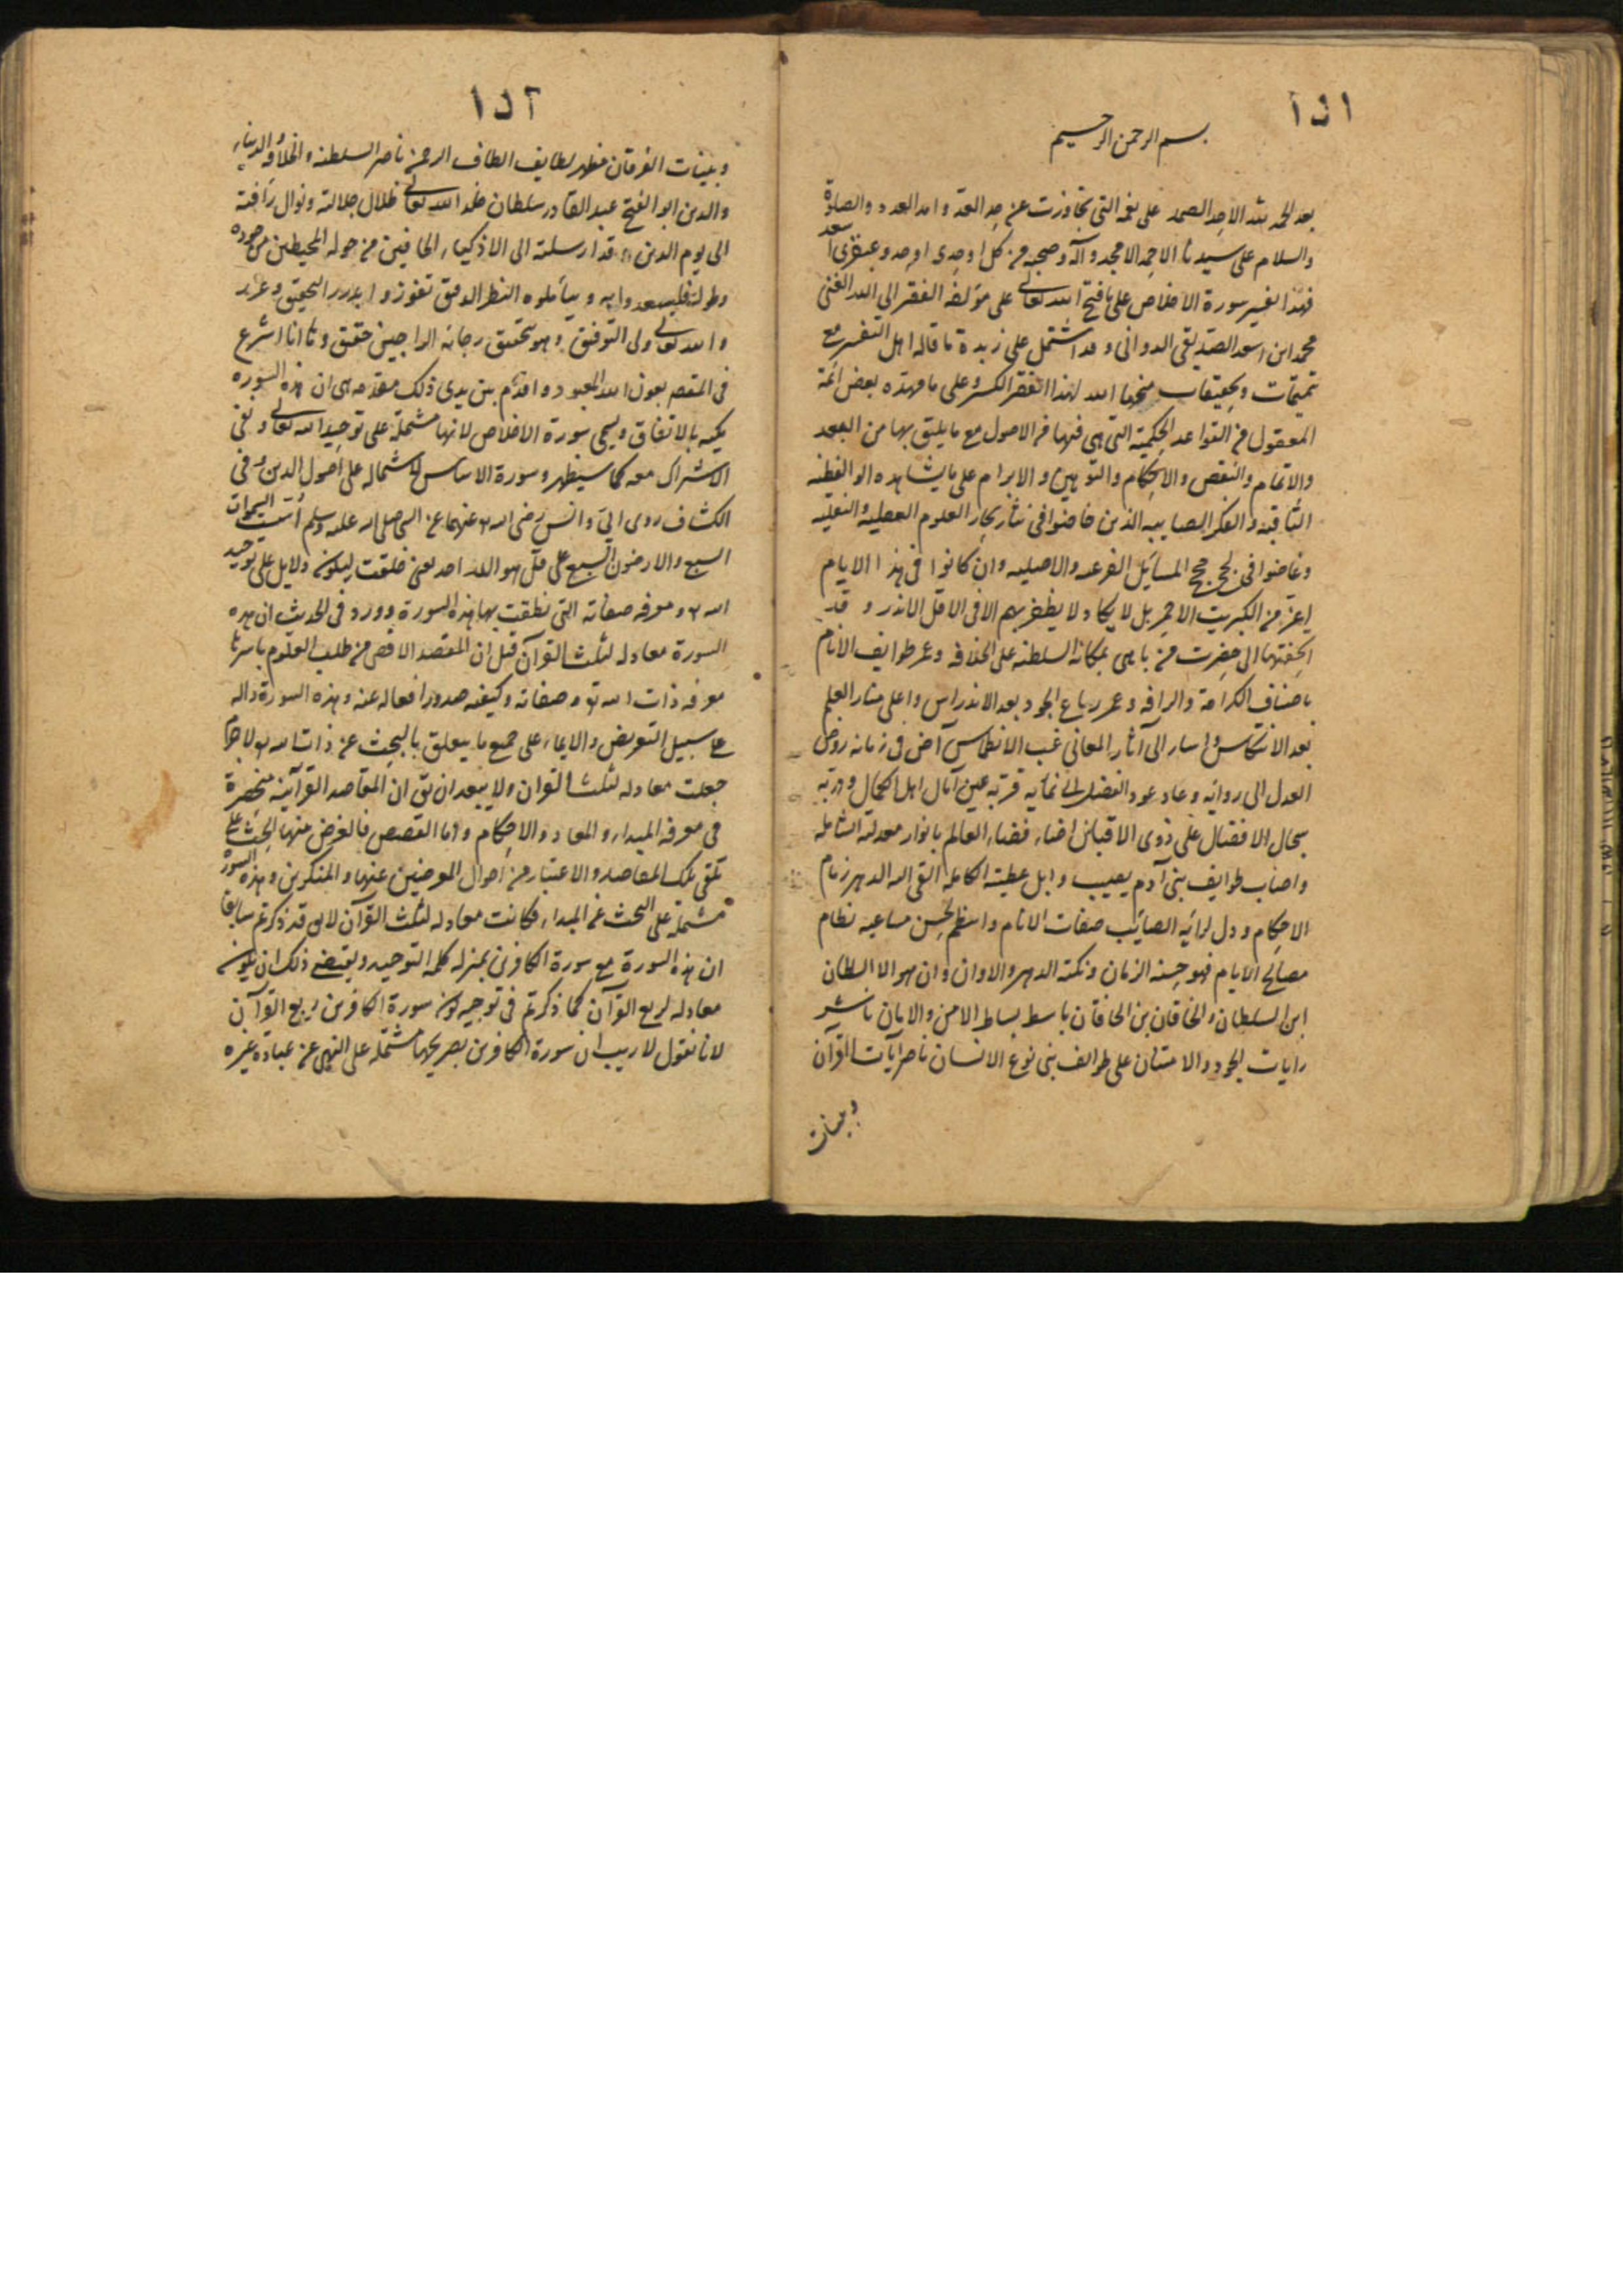 ١٥١
بسم الرحمن الرحيم
بعد الحمد لله الاحد الصمد على نعمه التى تجاوزت عن حد العد وامد العدد والصلوة
والسلام على سيدنا الاحمد الامجد وآله وصحبه من كل اوحدى اوحد وعبقرى اسعد
فهذا تفسير سورة الاخلاص على ما فتح الله تعالى على مؤلفه الفقير الى الله الغنى
محمد ابن اسعد الصديقى الدوانى وقد اشتمل على زبدة ما قاله اهل التفسير مع
تتميمات وتحقيقات منحها الله لهذا الفقير الكسير وعلى ما مهده بعض ائمة
المعقول من القواعد الحكمية التى هى فيها من الاصول مع ما يليق بها من
والاتمام والنقض والاحكام والتوهين والابرام على ما يشاهده الوالفطنه
الثاقبه والفكر الصايبه الذين خاضوا فى بحار العلوم العقليه والنقليه
وغاضوا فى لجج المسايل الفرعيه والاصليه وان كانوا فى هذا الايام
اعز من الكبريت الاحمر بل لا يكاد لا يظفر بهم الا فى الاقل الاندر وقد
اتحفتها الى حضرت من باهى بمكانه السلطنه على الخلافه وعمر طوايف الانام
باصناف الكرامة والرافه وعمر رباع الجود بعد الاندراس واعلى منار العلم
بعد الانتكاس واسار الى آثار المعانى غب الانطماس آض فى زمانه روض
العدل الى روائه وعاد عود الفضل الى نمائه قربه عين آمال اهل الكمال ودربه
سجال الافضال على ذوى الاقبال اضاء فضاء العالم بانوار معدلته الشامله
واصاب طوايف بنى آدم بصيب وابل عطيته الكامله القى اليه الدهر زمام
الاحكام ودل لرائه الصائب صفات الانام وانتظم بحسن مساعيه نظام
مصالح الايام فهو حسنه الزمان ونكتة الدهر والاوان وان هو الا السلطان
ابن السلطان والخاقان بن الخاقان باسط بساط الامن والامان ناشر
رايات الجود والامتنان على طوائف بنى نوع الانسان ناصر آيات القرآن
وبينات
١٥٢
وبينات الفرقان مظهر لطايف الطاف الرحمن ناصر السلطنه والخلافه والدنيا
والدين ابو الفتح عبد القادر سلطان خلد الله تعالى ظلال جلالته ونوال رأفته
الى يوم الدين قد ارسلته الى الاذكياء الحافين من حوله المحيطين من جوده
وطوله فليسعدوا به ويتأملوه النظر الدقيق تفوزوا بدرر التحقيق وغرر
والله تعالى ولى التوفيق وهو بتحقيق رجاء الراجين حقيق وها انا اشرع
فى المقصد بعون الله المعبود واقدم بين يدى ذلك مقدمه هى ان هذه السورة
مكيه بالاتفاق ويسمى سورة الاخلاص لانها مشتملة على توحيد الله تعالى ونفى
الاشراك معه كما سيظهر وسورة الاساس لاشتماله على اصول الدين وفى
الكشاف روى ابى وانس رضى الله عنهما عن النبى صلى الله عليه وسلم اسست السموات
السبع والارضون السبع على قل هو الله احد يعنى خلقت ليكون دلايل على توحيد
الله ومعرفه صفاته التى نطقت بها هذه السورة وورد فى الحديث ان هذه
السورة معادله لثلث القرآن قيل ان المقصد الاقصى من طلب العلوم باسرها
معرفه ذات الله تع وصفاته وكيفيه صدور افعاله عنه وهذه السورة داله
على سبيل التعريض والايماء على جميع ما يتعلق بالبحث عن ذات الله تع لاجرم
جعلت معادله لثلث القرآن ولا يبعد ان يق ان المقاصد القرآنيه منحصرة
فى معرفه المبداء والمعاد والاحكام واما القصص فالغرض منها الحث على
تلقى تلك المقاصد والاعتبار من احوال المعرضين عنها والمنكرين وهذه السورة
مشتملة على البحث عن المبداء فكانت معادله لثلث القرآن لا يق قد ذكرتم سابقا
ان هذه السورة مع سورة الكافرين بمنزله كلمه التوحيد ويقتضى ذلك ان يكون
معادله لربع القرآن كما ذكرتم فى توجيه كون سورة الكافرين ربع القرآن
لانا نقول لا ريب ان سورة الكافرين بصريحها مشتمله على النهى عن عبادة غيره